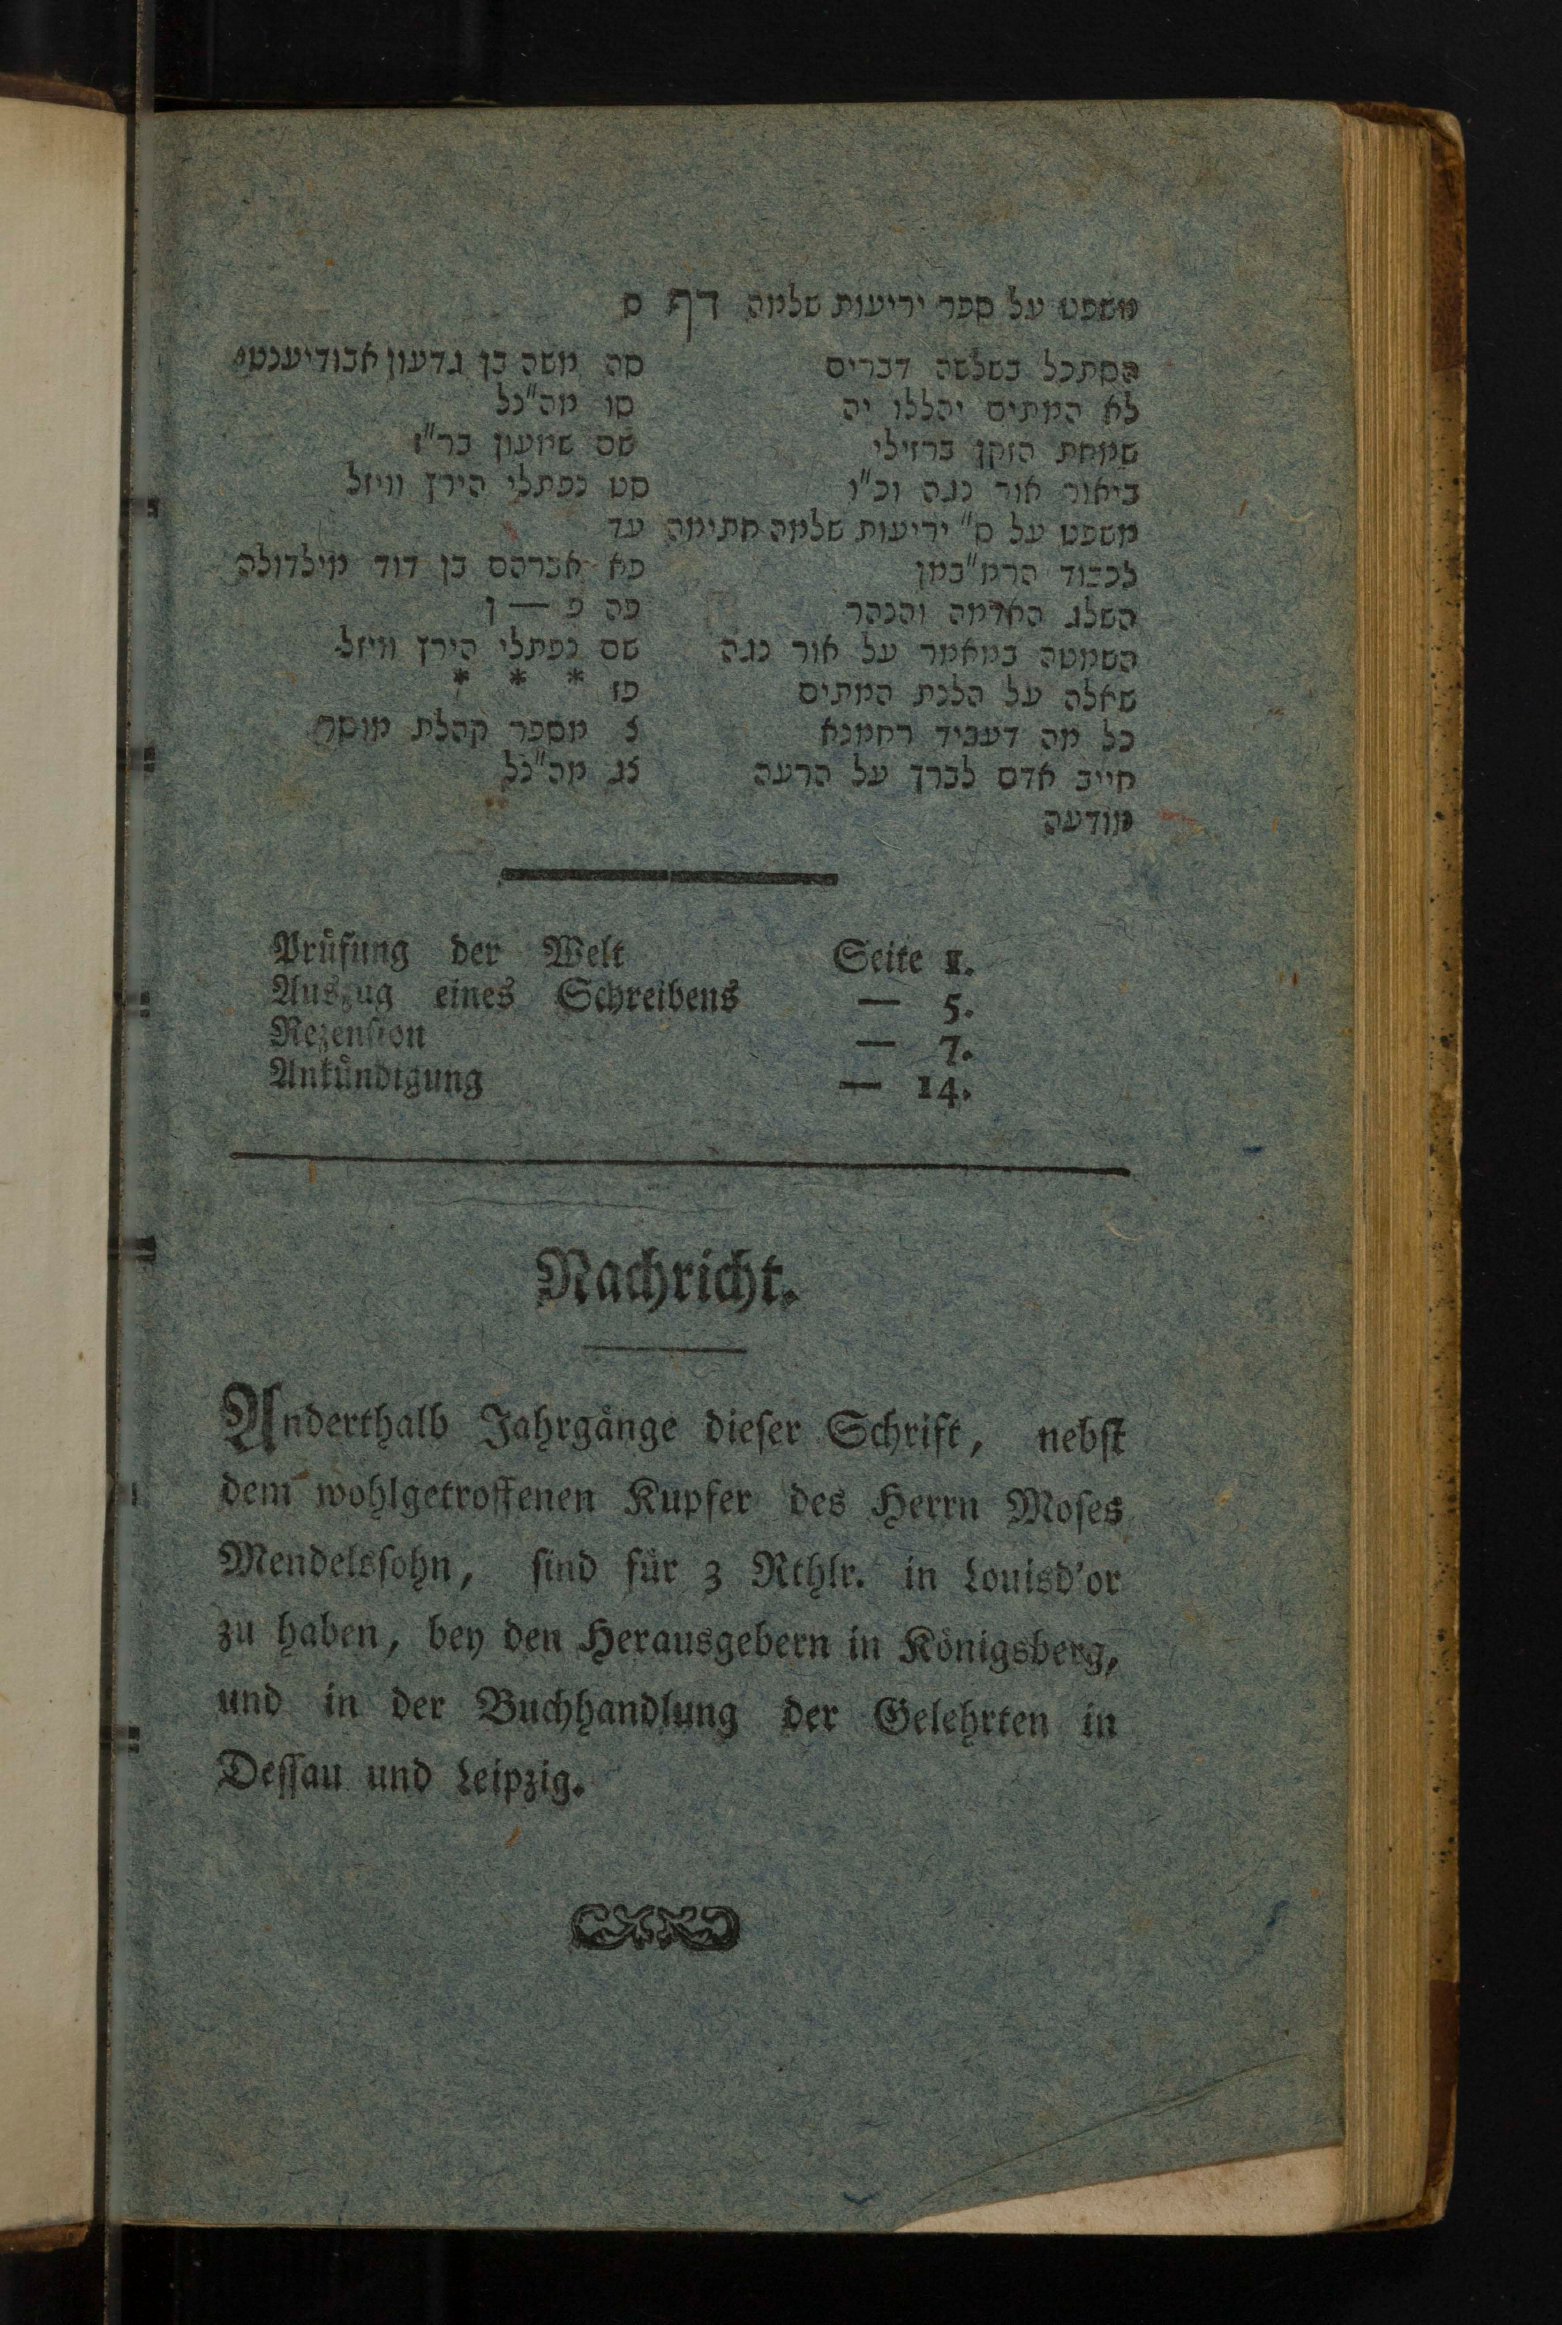 משפט על ספר יריעות שלמה דף ס
הסתכל בשלשה דברים סה משה בן גדעון אבודיענטי
לא המתים יהללו יה סו מה"כל
שמחת הזקן ברזילי שם שמעון בר"ז
ביאור אור נגה וכ"ו סט נפתלי הירץ וויזל
משפט על ס" יריעות שלמה חתימה עד
לכבוד הרמ"במן פא אברהם בן דוד מילדולה
השלג האדמה והנהר פה פ — ן
השמטה במאמר על אור נגה שם נפתלי הירץ וויזל
שאלה על הלנת המתים פז * * *
כל מה דעביד רחמנא צ מספר קהלת מוסר
חייב אדם לברך על הרעה צג מה"כל
מודעה
Prüfung der Welt Seite 1.
Auszug eines Schreibens — 5.
Rezension — 7.
Ankündigung — 14.
Nachricht.
Anderthalb Jahrgänge dieser Schrift, nebst
dem wohlgetroffenen Kupfer des Herrn Moses
Mendelssohn, sind für 3 Rthlr. in Louisd'or
zu haben, bey den Herausgebern in Königsberg,
und in der Buchhandlung der Gelehrten in
Dessau und Leipzig.